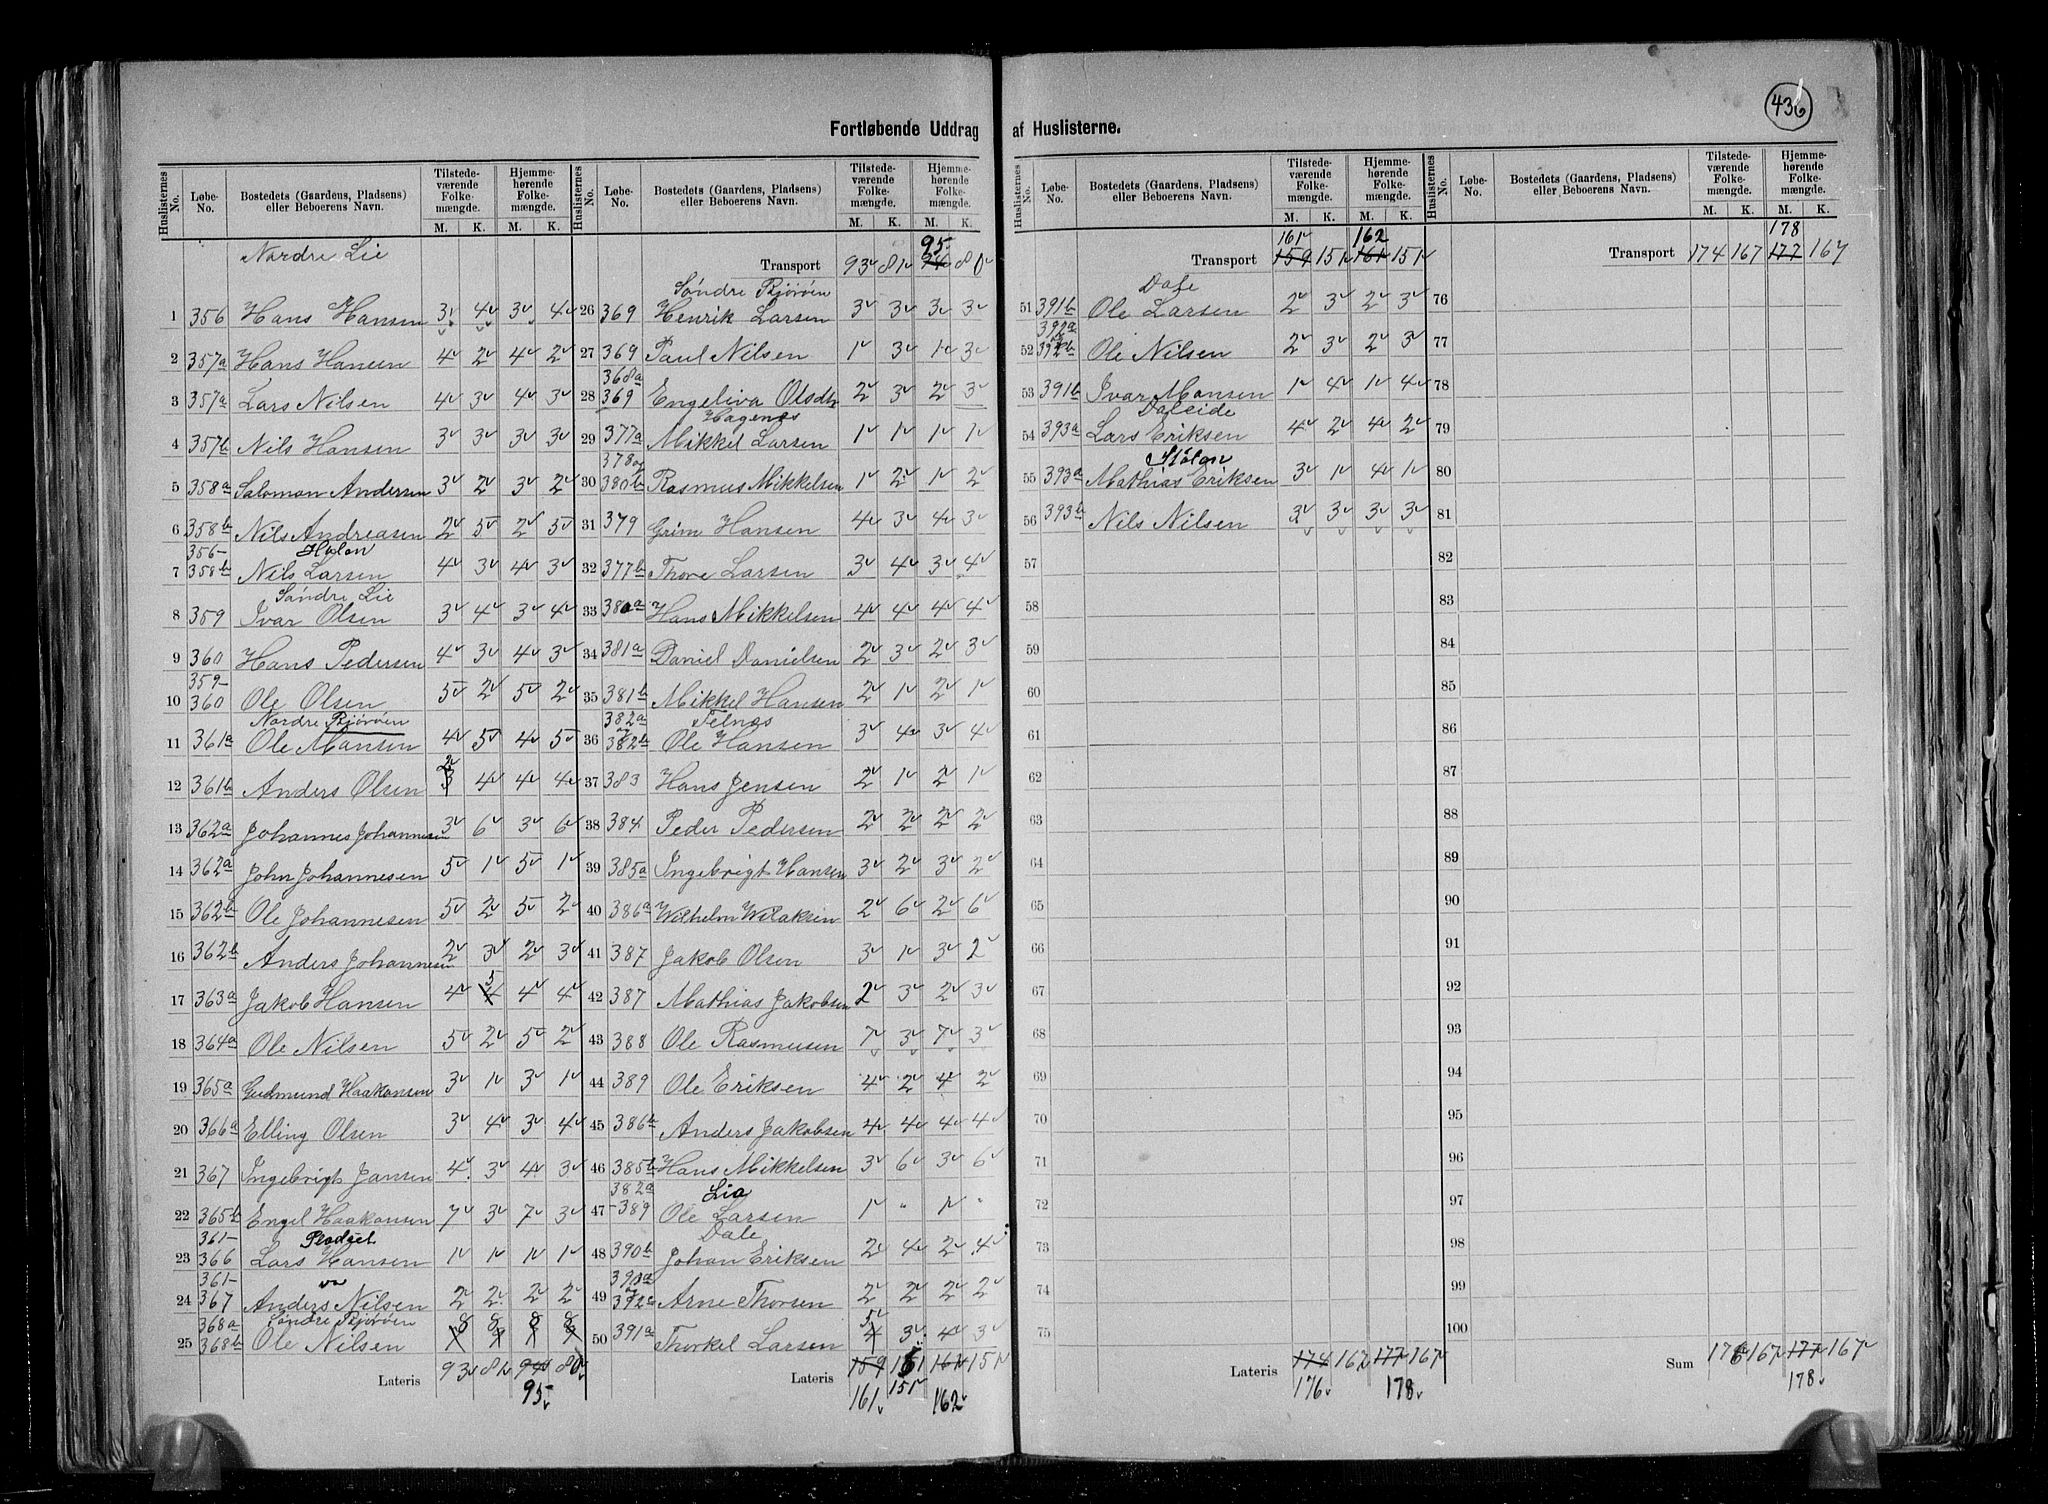 436
Fortløbende Uddrag af Huslisterne.
Huslisternes No. Løbe-No. Bostedets (Gaardens, Pladsens) eller Beboerens Navn. Tilstedeværende Folkemængde. M. K. Hjemmehørende Folkemængde. M. K.
Nordre Lie
1 356 Hans Hansen 3 4 3 4
2 357a Hans Hansen 4 2 4 2
3 357a Lars Nilsen 4 3 4 3
4 357b Nils Hansen 3 3 3 3
5 358a Salomon Andersen 3 2 3 2
6 358b Nils Andreasen 2 5 2 5
356- Holon
7 358b Nils Larsen 4 3 4 3
Søndre Lie
8 359 Ivar Olsen 3 4 3 4
9 360 Hans Pedersen 4 3 4 3
359-
10 360 Ole Olsen 5 2 5 2
Nordre Bjørøen
11 361a Ole Mansen 4 5 4 5
2
12 361b Anders Olsen 3 4 4 4
13 362a Johannes Johannesen 3 6 3 6
14 362a John Johannesen 5 1 5 1
15 362b Ole Johannesen 5 2 5 2
16 362b Anders Johannesen 2 3 2 3
5
17 363a Jakob Hansen 4 4 4 4
18 364a Ole Nilsen 5 2 5 2
19 365a Gudmund Haakonsen 3 1 3 1
20 366a Elling Olsen 3 4 3 4
21 367 Ingebrigt Jansen 4 3 4 3
22 365b Engel Haakonsen 7 3 7 3
361- Pladset
23 366 Lars Hansen 1 1 1 1
361-
24 367 Anders Nilsen 2 2 2 2
368a Søndre Bjørøen 8 8 8 8
25 368b Ole Nilsen
Lateris 93 81 94 80
95
Huslisternes No. Løbe-No. Bostedets (Gaardens, Pladsens) eller Beboerens Navn. Tilstedeværende Folkemængde. M. K. Hjemmehørende Folkemængde. M. K.
95
Transport 93 81 94 80
Søndre Bjørøen
26 369 Henrik Larsen 3 3 3 3
27 369 Paul Nilsen 1 3 1 3
368a
28 369 Engeliva Olsdtr 2 3 2 3
Hagenes
29 377a Mikkel Larsen 1 1 1 1
378 og
30 380b Rasmus Mikkelsen 1 2 1 2
31 379 Grim Hansen 4 3 4 3
32 377b Thore Larsen 3 4 3 4
33 380a Hans Mikkelsen 4 4 4 4
34 381a Daniel Danielsen 2 3 2 3
35 381b Mikkel Hansen 2 1 2 1
382a Telnes
36 382b Ole Hansen 3 4 3 4
37 383 Hans Jensen 2 1 2 1
38 384 Peder Pedersen 2 2 2 2
39 385a Ingebrigt Hansen 3 2 3 2
40 386a Wilhelm Willaksen 2 6 2 6
41 387 Jakob Olsen 3 1 3 2
42 387 Mathias Jakobsen 2 3 2 3
43 388 Ole Rasmusen 7 3 7 3
44 389 Ole Eriksen 4 2 4 2
45 386b Anders Jakobsen 4 4 4 4
46 385b Hans Mikkelsen 3 6 3 6
382a Lia
47 -389 Ole Larsen 1 " 1 "
Dale
48 390b Johan Eriksen 2 4 2 4
390a og
49 392c Arne Thorsen 2 2 2 2
5
50 391a Thorkel Larsen 4 3 4 3
Lateris 159 151 161 151
161 151 162
Huslisternes No. Løbe-No. Bostedets (Gaardens, Pladsens) eller Beboerens Navn. Tilstedeværende Folkemængde. M. K. Hjemmehørende Folkemængde. M. K.
161 162
Transport 159 151 161 151
Dale
51 391b Ole Larsen 2 3 2 3
392a
52 392b Ole Nilsen 2 3 2 3
53 391b Ivar Mansen 1 4 1 4
Daleide
54 393a Lars Eriksen 4 2 4 2
Stølen
55 393a Mathias Eriksen 3 1 4 1
56 393b Nils Nilsen 3 3 3 3
57
58
59
60
61
62
63
64
65
66
67
68
69
70
71
72
73
74
75
Lateris 174 167 177 167
176 178
Huslisternes No. Løbe-No. Bostedets (Gaardens, Pladsens) eller Beboerens Navn. Tilstedeværende Folkemængde. M. K. Hjemmehørende Folkemængde. M. K.
178
Transport 174 167 177 167
76
77
78
79
80
81
82
83
84
85
86
87
88
89
90
91
92
93
94
95
96
97
98
99
100
Sum 176 167 177 167
178